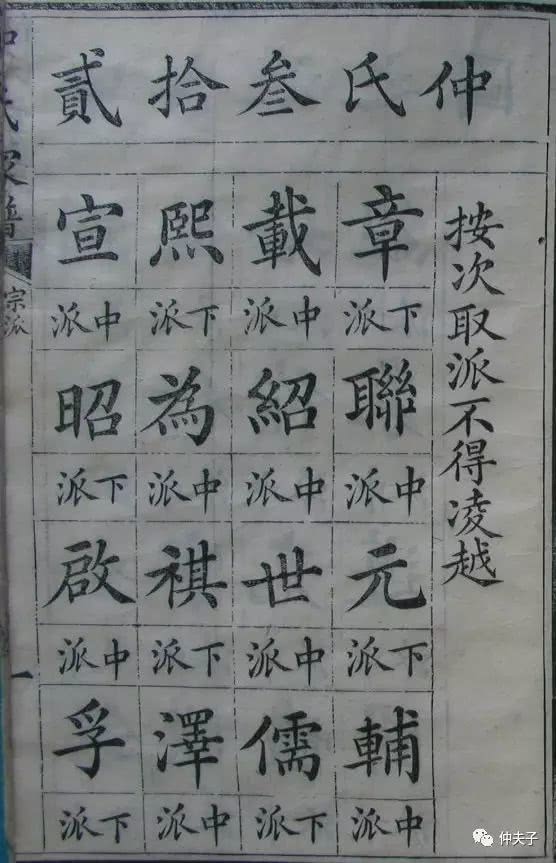 仲氏叁拾貳
按次取派不得凌越
章
下派
聯
中派
元
下派
輔
中派
載
中派
紹
中派
世
中派
儒
下派
熙
下派
為
中派
祺
下派
澤
中派
宣
中派
昭
下派
啟
中派
孚
下派
宗派
一
仲夫子